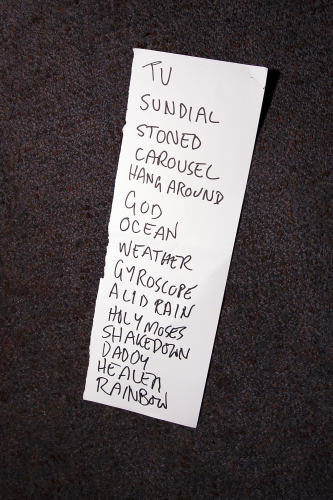 TV
SUNDIAL
STONED
CAROUSEL
HANG AROUND
GOD
OCEAN
WEATHER
GYROSCOPE
ACID RAIN
HOLY MOSES
SHAKEDOWN
DADDY
HEALER
RAINBOW